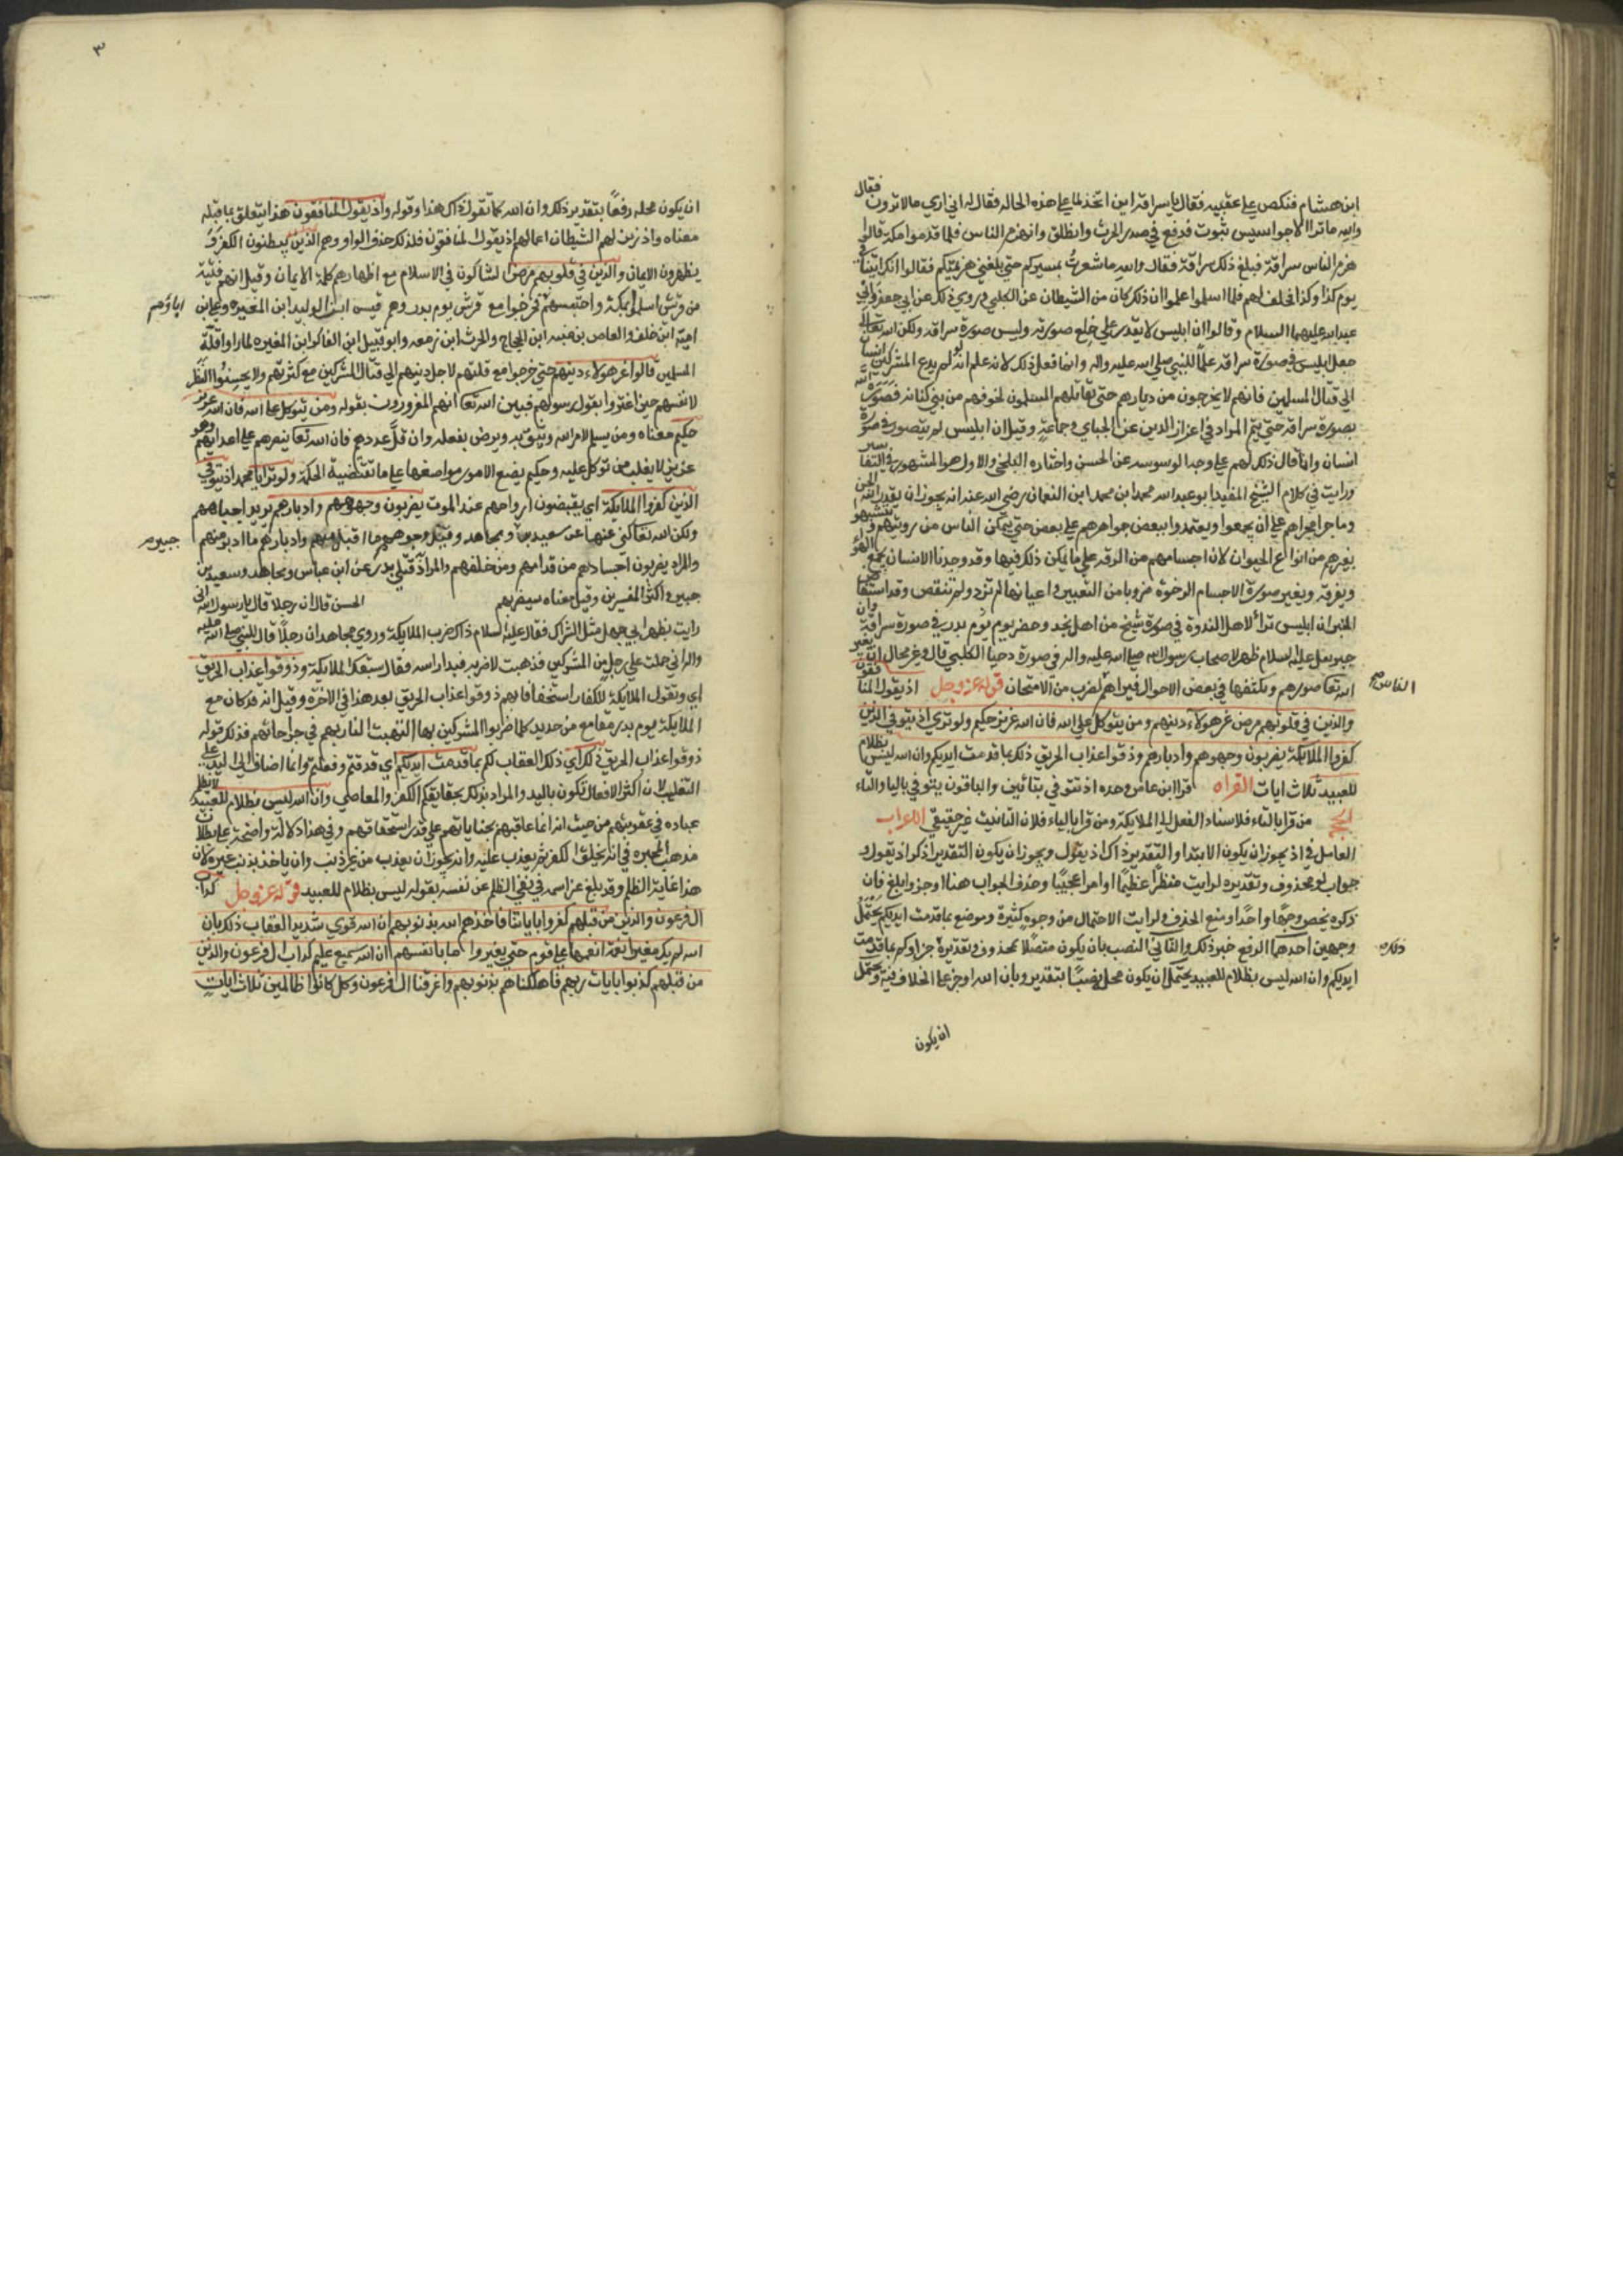 ابن هشام فنكص على عقبيه فقال يا سراقة اين اتخذلنا على هذه الحالة فقال له اني ارى ما لا ترون فقال
والله ما ترا الا جواسيس يثرب فدفع في صدر الحرث وانطلق وانهزم الناس فلما قدموا مكة قالوا
هزم الناس سراقة فبلغ ذلك سراقة فقال والله ما شعرت بمسيركم حتى بلغني هزيمتكم فقالوا انك اتيتنا في
يوم كذا وكذا فحلف لهم فلما اسلموا علموا ان ذلك كان من الشيطان عن الكلبي وروي ذلك عن ابي جعفر وابي
عبد الله عليهما السلام وقالوا ان ابليس لا يقدر على خلع صورته ولبس صورة سراقة ولكن الله تعالى
جعل ابليس في صورة سراقة علما للنبي صلى الله عليه واله وانما فعل ذلك لانه علم انه لو لم يدع المشركين انسان
الى قتال المسلمين فانهم لا يخرجون من ديارهم حتى تقاتلهم المسلمون لخوفهم من بني كنانة فصوره الله
بصورة سراقة حتى يتم المراد في اعزاز الدين عن الجباي وجماعة وقيل ان ابليس لم يتصور في صورة
انسان وانما قال ذلك لهم على وجه الوسوسه عن الحسن واختاره البلخي والاول هو المشهور في التفاسير
ورايت في كلام الشيخ المفيد ابو عبد الله محمد ابن محمد ابن النعمان رضي الله عنه انه يجوز ان يقدر الله الجن
وما جرا مجراهم على ان يجمعوا ويعتمدوا ببعض جواهرهم على بعض حتى يتمكن الناس من رويتهم ويتشبهوا
بغيرهم من انواع الحيوان لان اجسامهم من الرقة على ما يمكن ذلك فيها وقد وجدنا الانسان يجمع الهواء
ويفرقه ويغير صورة الاجسام الرخوة ضروبا من التغيير واعيانها لم تزد ولم تنقص وقد استفاض
الخبر ان ابليس ترا لاهل الندوة في صورة شيخ من اهل نجد وحضر يوم بدر في صورة سراقة وان
جبرئيل عليه السلام ظهر لاصحاب رسول الله صلى الله عليه واله في صورة دحيا الكلبي قال وغير محال ان يغير
الله تعا صورهم ويكثفها في بعض الاحوال فيراهم لضرب من الامتحان قوله عز وجل اذ يقول المنافقون
الناس صح
والذين في قلوبهم مرض غر هولاء دينهم ومن يتوكل على الله فان الله عزيز حكيم ولو ترى اذ يتوفى الذين
كفروا الملايكة يضربون وجوههم وادبارهم وذوقوا عذاب الحريق ذلك بما قدمت ايديكم وان الله ليس بظلام
للعبيد ثلاث ايات القراه قرا ابن عامر وحده اذ تتوفى بتائين والباقون يتوفى بالياء والتاء
الحجة من قرا بالتاء فلاسناد الفعل الى الملايكة ومن قرا بالياء فلان التانيث غير حقيقي الاعراب
العامل في اذ يجوز ان يكون الابتدا والتقدير ذاك اذ يقول ويجوز ان يكون التقدير اذكر اذ يقول و
جواب لو محذوف وتقديره لرايت منظرا عظيما او امرا عجيبا وحذف الجواب هنا اوجز وابلغ فان
ذكره يخص وجها واحدا ومع الحذف لرايت الاحتمال من وجوه كثيرة وموضع بما قدمت ايديكم يحتمل
وجهين احدهما الرفع خبر ذلك والثاني النصب بان يكون متصلا بمحذوف وتقديره جزاوكم بما قدمت
ذلك
ايديكم وان الله ليس بظلام للعبيد يحتمل ان يكون محله نصبا بتقدير وبان الله اوجرعا الخلاف فيه ويحتمل
ان يكون
٣
ان يكون محله رفعا بتقدير ذلك وان الله كما تقول ذاك هذا وقوله واذ يقول المنافقون هذا يتعلق بما قبله
معناه واذ زين لهم الشيطان اعمالهم اذ يقول المنافقون فلذلك حذف الواو وهم الذين يبطنون الكفر و
يظهرون الايمان والذين في قلوبهم مرض الشاكون في الاسلام مع اظهارهم كلمة الايمان وقيل انهم فتية
من قريش اسلموا بمكة واحتبسهم فخرجوا مع قريش يوم بدر وهم قيس ابن الوليد ابن المغيره وعلي ابن
اباؤهم
امية ابن خلف والعاص بن منبه ابن الحجاج والحرث ابن زمعه وابو قبيل ابن الفاكه ابن المغيره لما راوا قلة
المسلمين قالوا غر هولاء دينهم حتى خرجوا مع قلتهم لاجل دينهم الى قتال المشركين مع كثرتهم ولا يحسنوا النظر
لانفسهم حين اغتروا بقول رسولهم فبين الله تعا انهم المغرورون بقوله ومن يتوكل على الله فان الله عزيز
حكيم معناه ومن يسلم لامر الله ويثق به ويرض بفعله وان قل عددهم فان الله تعا ينصرهم على اعدائهم وهو
عزيز لا يغلب من توكل عليه وحكيم يضع الامور مواضعها على ما تقتضيه الحكمة ولو ترى يا محمد اذ يتوفى
الذين كفروا الملايكة اي يقبضون ارواحهم عند الموت يضربون وجوههم وادبارهم يريد اجسادهم
ولكن الله تعا كنى عنها عن سعيد بن ومجاهد وقيل وجوههم ما اقبل منهم وادبارهم ما ادبر منهم
جبير صح
والمراد يضربون اجسادهم من قدامهم ومن خلفهم والمراد قتلى بدر عن ابن عباس ومجاهد وسعيد بن
جبير واكثر المفسرين وقيل معناه سيضربهم الحسن قال ان رجلا قال يا رسول الله اني
رايت بظهر ابي جهل مثل الشراك فقال عليه السلام ذاك ضرب الملايكة وروي مجاهد ان رجلا قال للنبي صلى الله عليه
واله اني حملت على رجل من المشركين فذهبت لاضربه فبدر راسه فقال سبقك الملايكة وذوقوا عذاب الحريق
اي وتقول الملايكة للكفار استخفافا بهم ذوقوا عذاب الحريق بعد هذا في الاخرة وقيل انه قد كان مع
الملايكة يوم بدر مقامع من حديد كلما ضربوا المشركين بها التهبت النار بهم في جراحاتهم فذلك قوله
ذوقوا عذاب الحريق ذلك اي ذلك العقاب لكم بما قدمت ايديكم اي قدمتم وفعلتم وانما اضاف الى اليد على
التغليب لان اكثر الافعال تكون باليد والمراد بذلك بجنايتكم الكفر والمعاصي وان الله ليس بظلام للعبيد لا يظلم
عباده في عقوبتهم من حيث انه انما عاقبهم بجناياتهم على قدر استحقاقهم وفي هذا دلالة واضحة على بطلان
مذهب المجبره في انه يخلق الكفر ثم يعذب عليه وانه يجوز ان يعذب من غير ذنب وان ياخذ بذنب غيره لان
هذا غاية الظلم وقد بلغ عز اسمه في نفي الظلم عن نفسه بقوله ليس بظلام للعبيد قوله عز وجل كداب
ال فرعون والذين من قبلهم كفروا بايات الله فاخذهم الله بذنوبهم ان الله قوي شديد العقاب ذلك بان
الله لم يك مغيرا نعمة انعمها على قوم حتى يغيروا ما بانفسهم وان الله سميع عليم كداب ال فرعون والذين
من قبلهم كذبوا بايات ربهم فاهلكناهم بذنوبهم واغرقنا ال فرعون وكل كانوا ظالمين ثلاث ايات